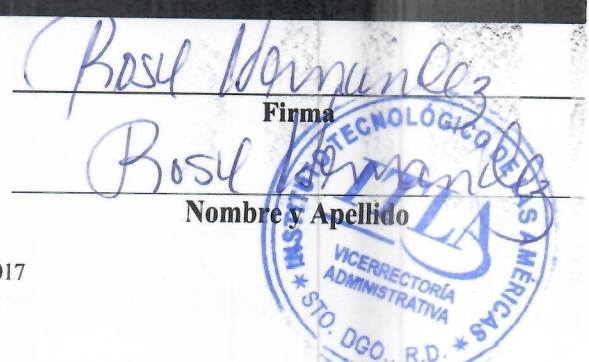 Rosy Hernández
Firma
Rosy Hernandez
Nombre y Apellido
017
* INSTITUTO TECNOLÓGICO DE LAS AMÉRICAS *
ITLA
VICERRECTORÍA
ADMINISTRATIVA
STO. DGO., R.D.